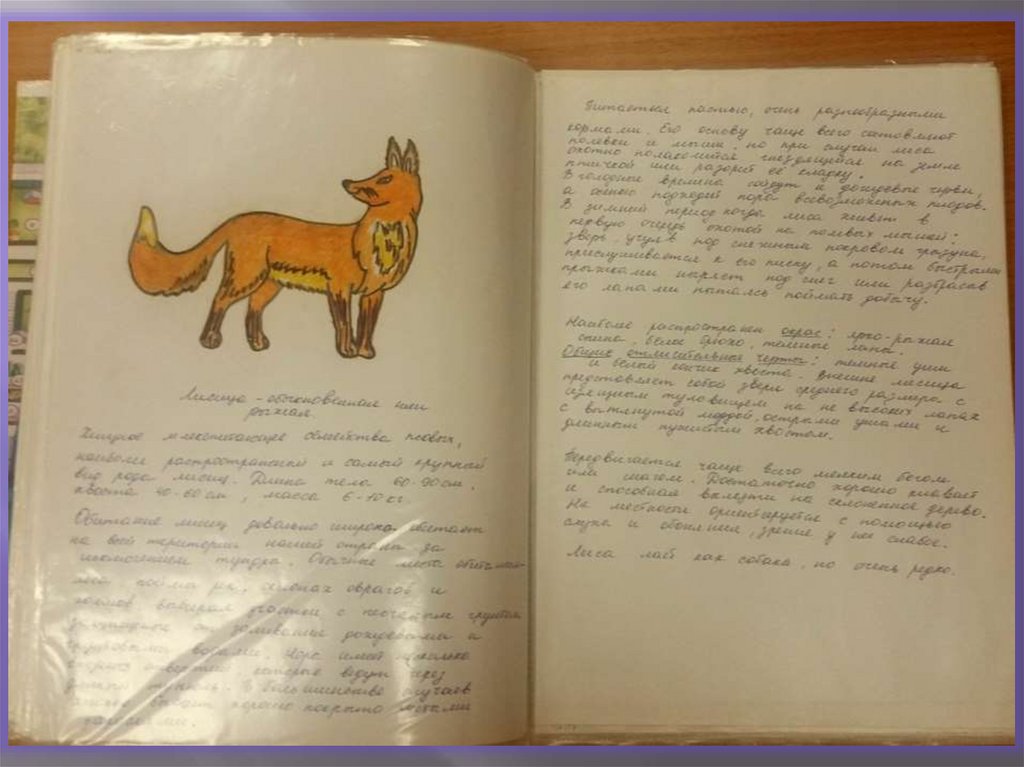 Лисица - обыкновенная или
рыжая.
Хищное млекопитающее семейства псовых,
наиболее распространённый и самый крупный
вид рода лисиц. Длина тела 60-90 см.
хвоста 40-60 см, масса 6-10 кг.
Обитание лисиц довольно широко обитают
на всей територии нашей страны за
исключением тундра. Обычные места обитания
пойма рек, склонах оврагов и
холмов выбирая участки с песчаным грунтом
от заливания дождевыми и
грунтовыми водами. Нора имеет несколько
входных отверстий которые ведут через
В большинстве случаев
хорошо покрыто
Питается пастью, очень разнообразными
кормами. Его основу чаще всего составляют
полевки и мыши. но при случаи лиса
охотно полакомится гнездящейся на земле
птичкой или разорит её кладку.
В голодные времена сойдут и дождевые черви,
а осенью подходит пора всевозможных плодов.
В зимний период когда лиса живет в
первую очередь охотой на полевых мышей:
зверь, учуяв под снежным покровом грызуна,
прислушивается к его писку, а потом быстрыми
прыжками ныряет под снег или разбрасыв
его лапами пытаясь поймать добычу.
Наиболее распространен окрас: ярко-рыжая
спина, белое брюхо, темные лапы.
Общие отличительные черты: темные уши
и белый кончик хвоста. Внешне лисица
представляет собой зверя среднего размера с
изящным туловищем на не высоких лапах
с вытянутой мордой, острыми ушами и
длинным пушистым хвостом.
Передвигается чаще всего мелким бегом
или шагом. Достаточно хорошо плавает
и способная влезти на склоненное дерево.
На местности ориентируется с помощью
слуха и обоняния, зрение у неё слабое.
Лиса лает как собака, но очень редко.